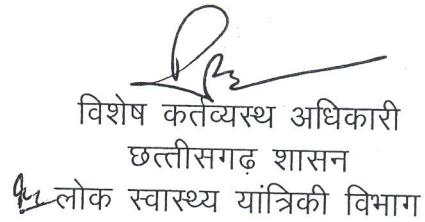 विशेष कर्तव्यस्थ अधिकारी
छत्तीसगढ़ शासन
लोक स्वास्थ्य यांत्रिकी विभाग